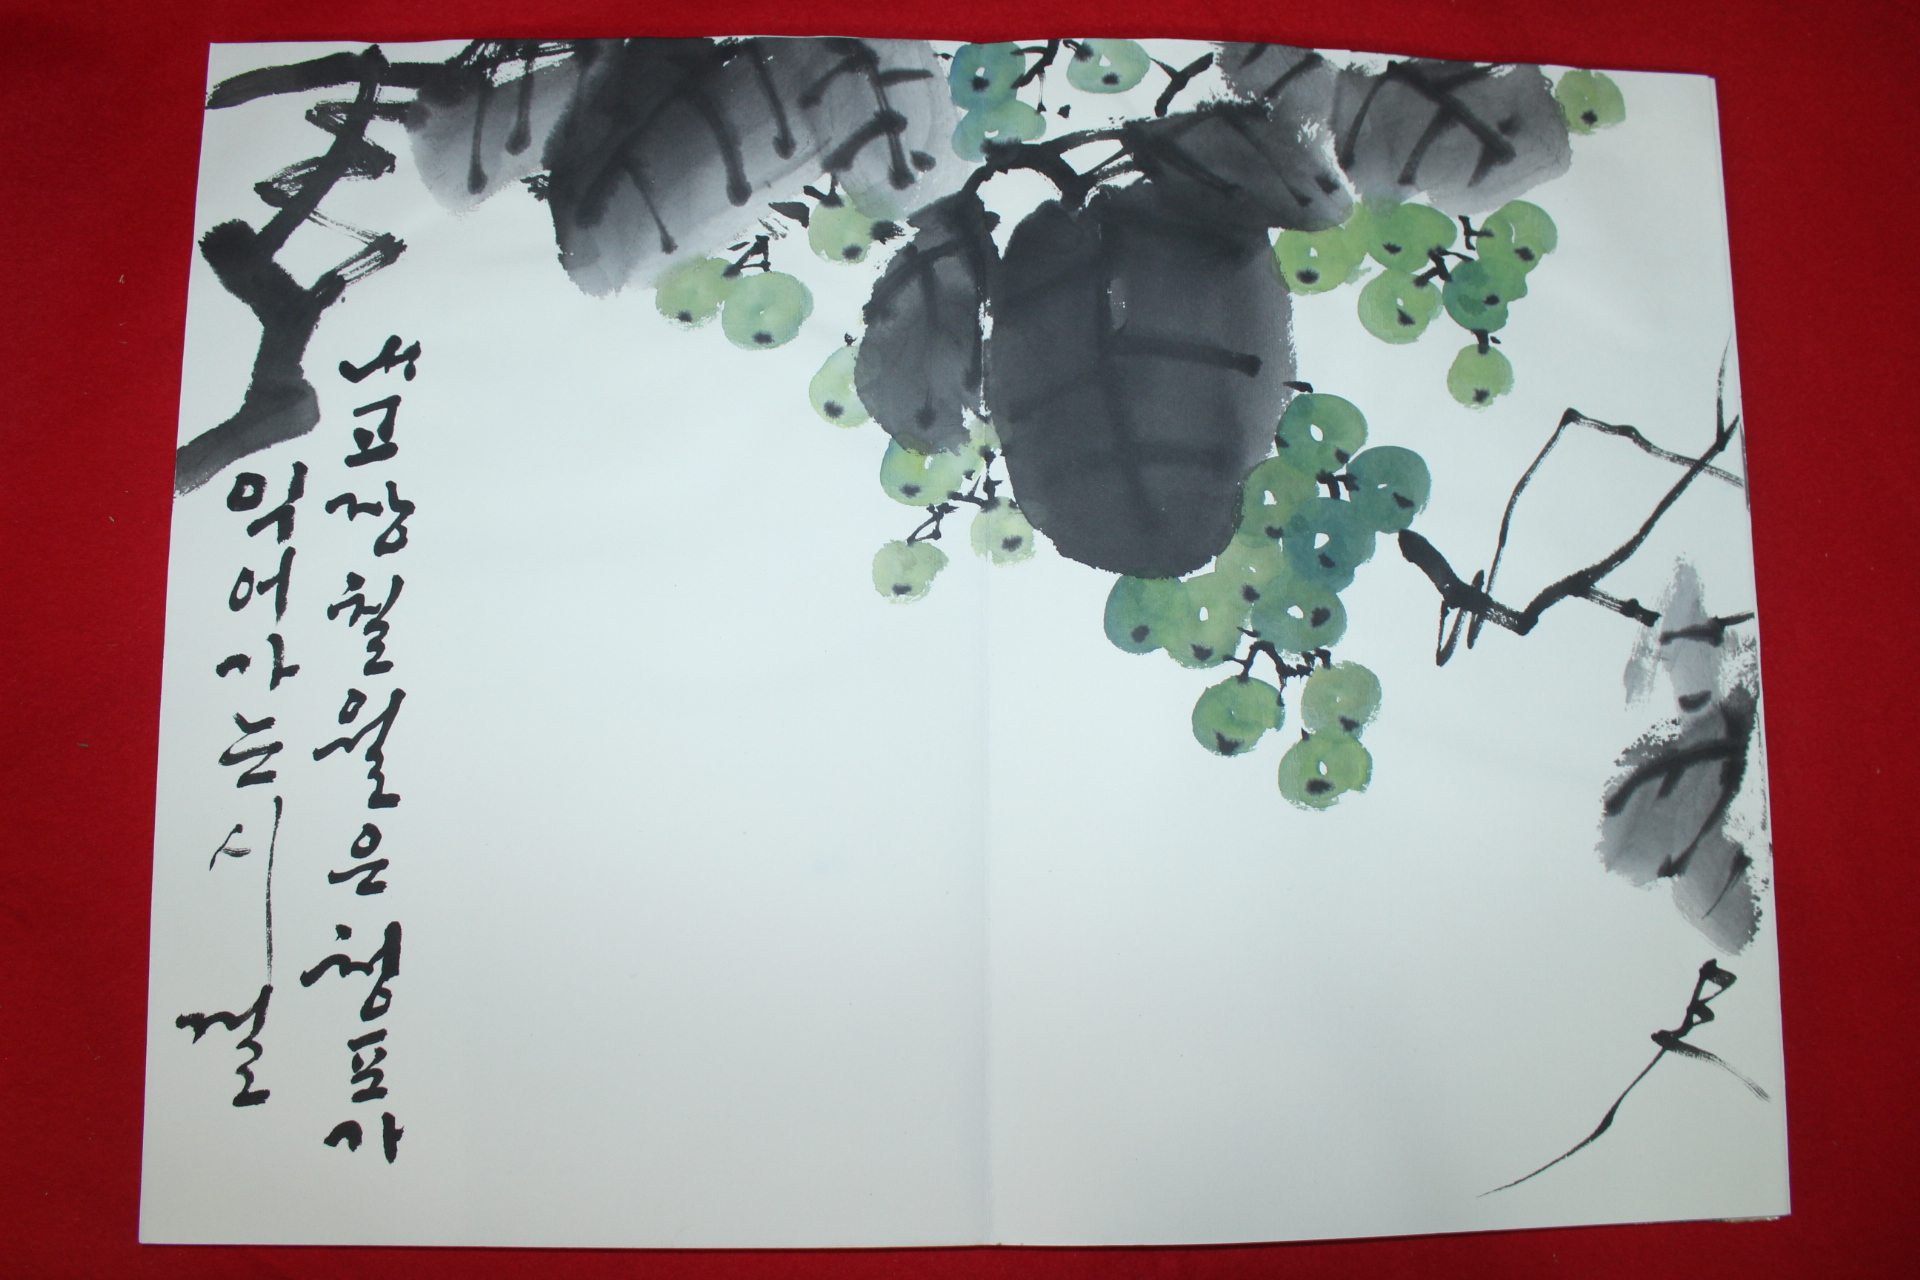 내고장 칠월은 청포도가
익어가는 시절